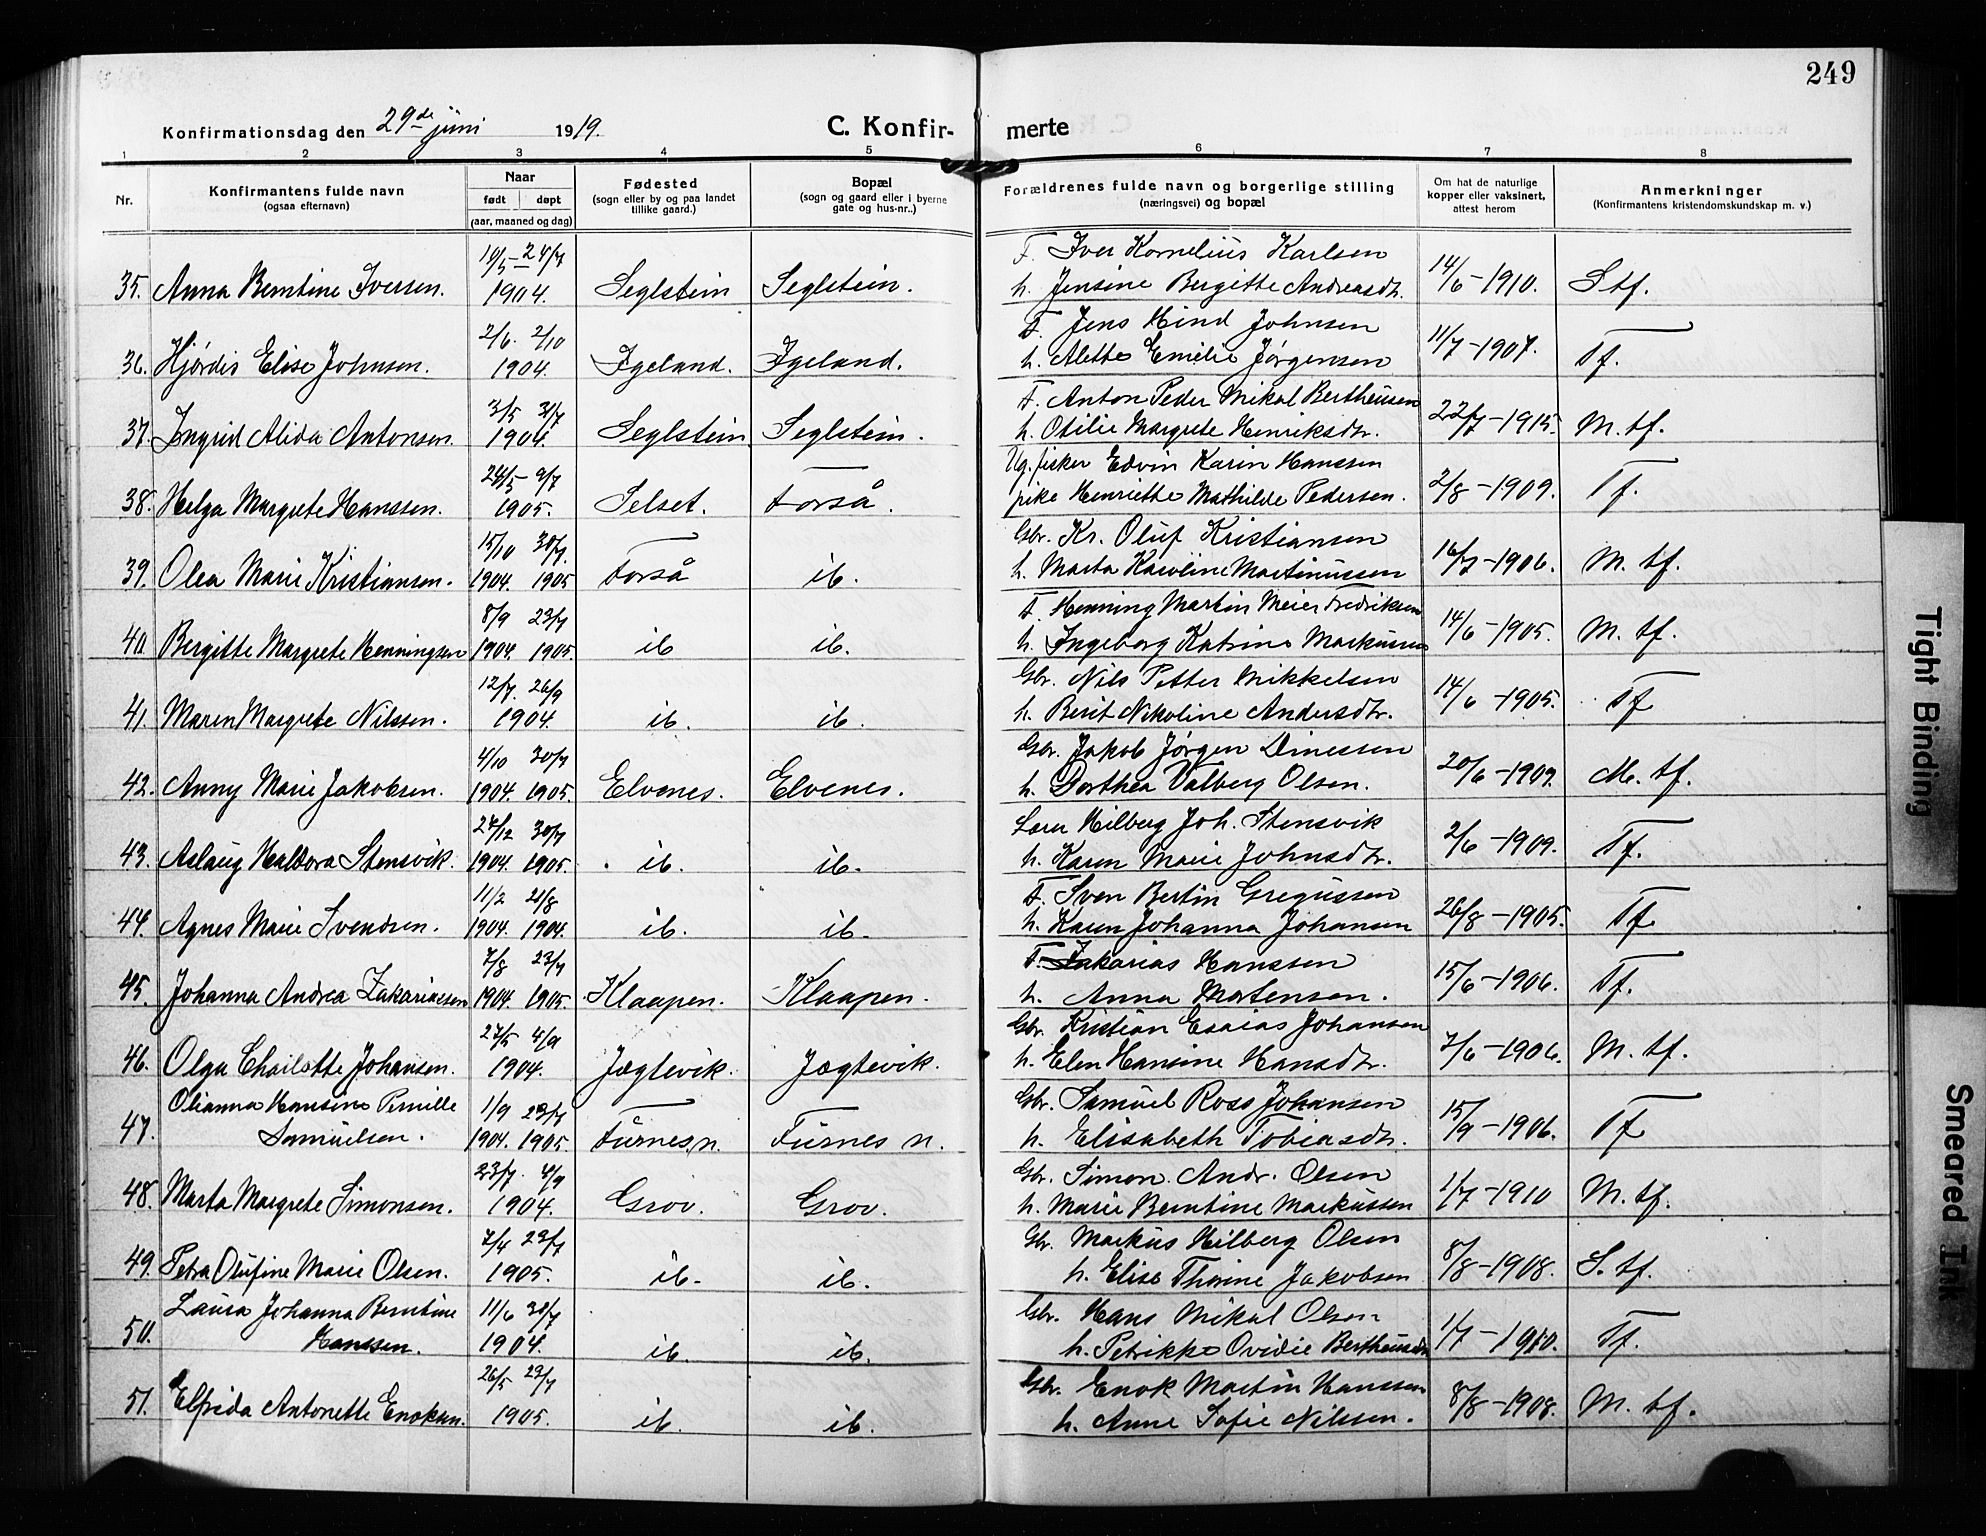 249
Konfirmationsdag den 29de juni 1919. C. Konfir- merte
1 2 3 4 5 6 7 8
Nr. Konfirmantens fulde navn (ogsaa efternavn) Naar født døpt (aar, maaned og dag) Fødested (sogn eller by og paa landet tillike gaard.) Bopæl (sogn og gaard eller i byerne gate og hus-nr.) Forældrenes fulde navn og borgerlige stilling (næringsvei) og bopæl Om hat de naturlige kopper eller vaksinert, attest herom Anmerkninger (Konfirmantens kristendomskundskap m. v.)
F. Iver Kornelius Karlsen
35. Anna Berntine Iversen. 1904. Seglstein Seglstein. h. Jensine Bergitte Andreasdtr. 14/6-1910. Stf.
2/6. 2/10 F. Jens Hind Johnsen
36. Hjørdis Elise Johnsen. 1904. Igeland. Igeland. h. Alette Emilie Jørgensen 11/7-1907. Tf.
3/5 31/7 F. Anton Peder Mikal Bertheusen
37. Ingrid Alida Antonsen. 1904. Seglstein Seglstein. h. Otilie Margrete Henriksdtr. 22/7-1915. M. tf.
24/5 9/7 Ug. fisker Edvin Karin Hanssen
38. Helga Margrete Hanssen. 1905. Selset. Forså. pike Henriette Mathilde Pedersen. 2/8-1909. Tf.
15/10 30/7 Gbr. Kr. Oluf Kristiansen
39. Olea Marie Kristiansen. 1904. 1905 Forså ib. h. Marta Karoline Martinussen 16/7-1906. M. tf.
8/9 23/7 F. Henning Martin Meier Fredriksen
40 Bergitte Margrete Henningsen 1904. 1905. ib ib. h. Ingeborg Katrine Markussen 14/6-1905. M. tf.
12/7. 26/9 Gbr. Nils Petter Mikkelsen
41. Maren Margrete Nilssen. 1904. ib. ib. h. Berit Nikoline Andersdtr. 14/6-1905. Tf
4/10 30/7 Gbr. Jakob Jørgen Dinessen
42. Anny Marie Jakobsen. 1904. 1905. Elvenes. Elvenes. h. Dorthea Valberg Olsen. 20/6-1909. M. tf.
27/12 30/7 Lærer Hilberg Joh. Stensvik
43. Aslaug Haldora Stensvik. 1904. 1905. ib. ib. h. Karen Marie Johnsdtr. 2/6-1909. Tf.
11/2 21/8 F. Sven Bertin Gregussen
44. Agnes Marie Svendsen. 1904. 1904. ib. ib. h. Karen Johanna Johansen 26/8-1905. Tf
7/8 23/7 F. Zakarias Hanssen
45. Johanna Andrea Zakariassen 1904. 1905. Klaapen. Klaapen. h. Anna Mortensen. 15/6-1906. Tf.
27/5 4/9 Gbr. Kristian Esaias Johansen
46. Olga Charlotte Johansen. 1904. Jægtevik. Jægtevik. h. Elen Hansine Hansdtr. 7/6-1906. M. tf.
Olianna Hansine Pernille 1/9 23/7 Gbr. Samuel Ross Johansen
47. Samuelsen. 1904. 1905. Furnes n. Furnes n. h. Elisabeth Tobiasdtr. 15/9-1906. Tf
23/7. 4/9 Gbr. Simon Andr. Olsen
48. Marta Margrete Simonsen. 1904. Grov. Grov. h. Marie Berntine Markussen 1/7-1910 M. tf.
7/4 23/7 Gbr. Markus Hilberg Olsen
49. Petra Olufine Marie Olsen. 1905. ib. ib. h. Elise Thorine Jakobsen 8/8-1908. S. tf.
Laura Johanna Berntine 11/6 30/7 Gbr. Hans Mikal Olsen
50. Hanssen. 1904. ib. ib. h. Petrikke Ovidie Bertheusdtr 1/7-1910. Tf.
26/5 23/7 Gbr. Enok Martin Hanssen
51. Elfrida Antonette Enoksen. 1905. ib. ib. h. Anne Sofie Nilssen. 8/8-1908. M. tf.
Tight Binding
Smeared Ink